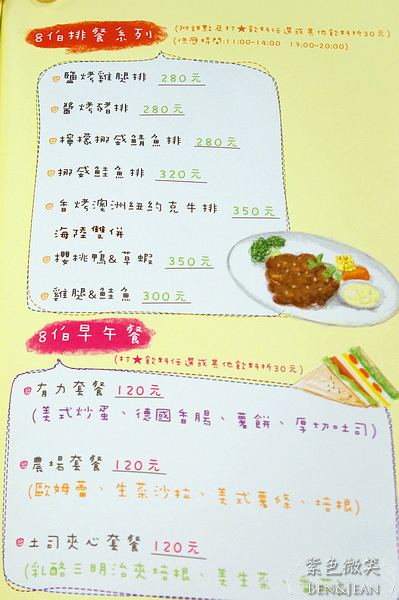 8伯排餐系列
(附甜點及打★飲料任選或其他飲料折30元)
(供應時間:11:00~14:00 17:00~20:00)
鹽烤雞腿排 280元
醬烤豬排 280元
檸檬挪威鯖魚排 280元
挪威鮭魚排 320元
香烤澳洲紐約克牛排 350元
海陸雙併
櫻桃鴨&草蝦 350元
雞腿&鮭魚 300元
8伯早午餐
(打★飲料任選或其他飲料折30元)
有力套餐 120元
(美式炒蛋、德國香腸、薯餅、厚切吐司)
農場套餐 120元
(歐姆蕾、生菜沙拉、美式薯條、培根)
土司夾心套餐 120元
(乳酪三明治夾培根、美生菜
紫色微笑
BEN&JEAN